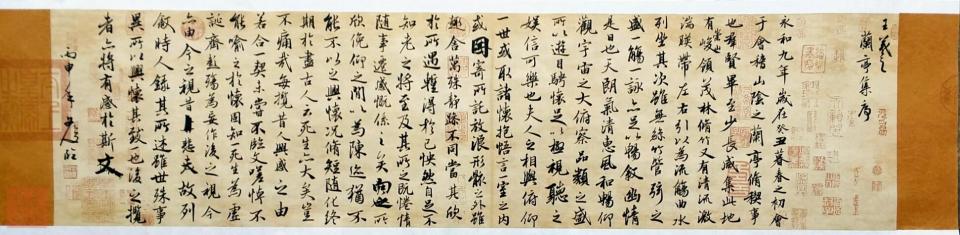 王羲之
蘭亭集序
永和九年歲在癸丑暮春之初會
于會稽山陰之蘭亭脩稧事
也群賢畢至少長咸集此地
崇山
有峻領茂林脩竹又有清流激
湍暎帶左右引以為流觴曲水
列坐其次雖無絲竹管弦之
盛一觴一詠亦足以暢敘幽情
是日也天朗氣清惠風和暢仰
觀宇宙之大俯察品類之盛
所以遊目騁懷足以極視聽之
娛信可樂也夫人之相與俯仰
一世或取諸懷抱悟言一室之內
或因寄所託放浪形骸之外雖
趣舍萬殊靜躁不同當其欣
於所遇暫得於己怏然自足不
知老之將至及其所之既惓情
隨事遷感慨係之矣向之所
欣俛仰之間以為陳迹猶不
能不以之興懷況脩短隨化終
期於盡古人云死生亦大矣豈
不痛哉每攬昔人興感之由
若合一契未嘗不臨文嗟悼不
能喻之於懷固知一死生為虛
誕齊彭殤為妄作後之視今
亦由今之視昔悲夫故列
敘時人錄其所述雖世殊事
異所以興懷其致一也後之攬
者亦將有感於斯文
丙申年